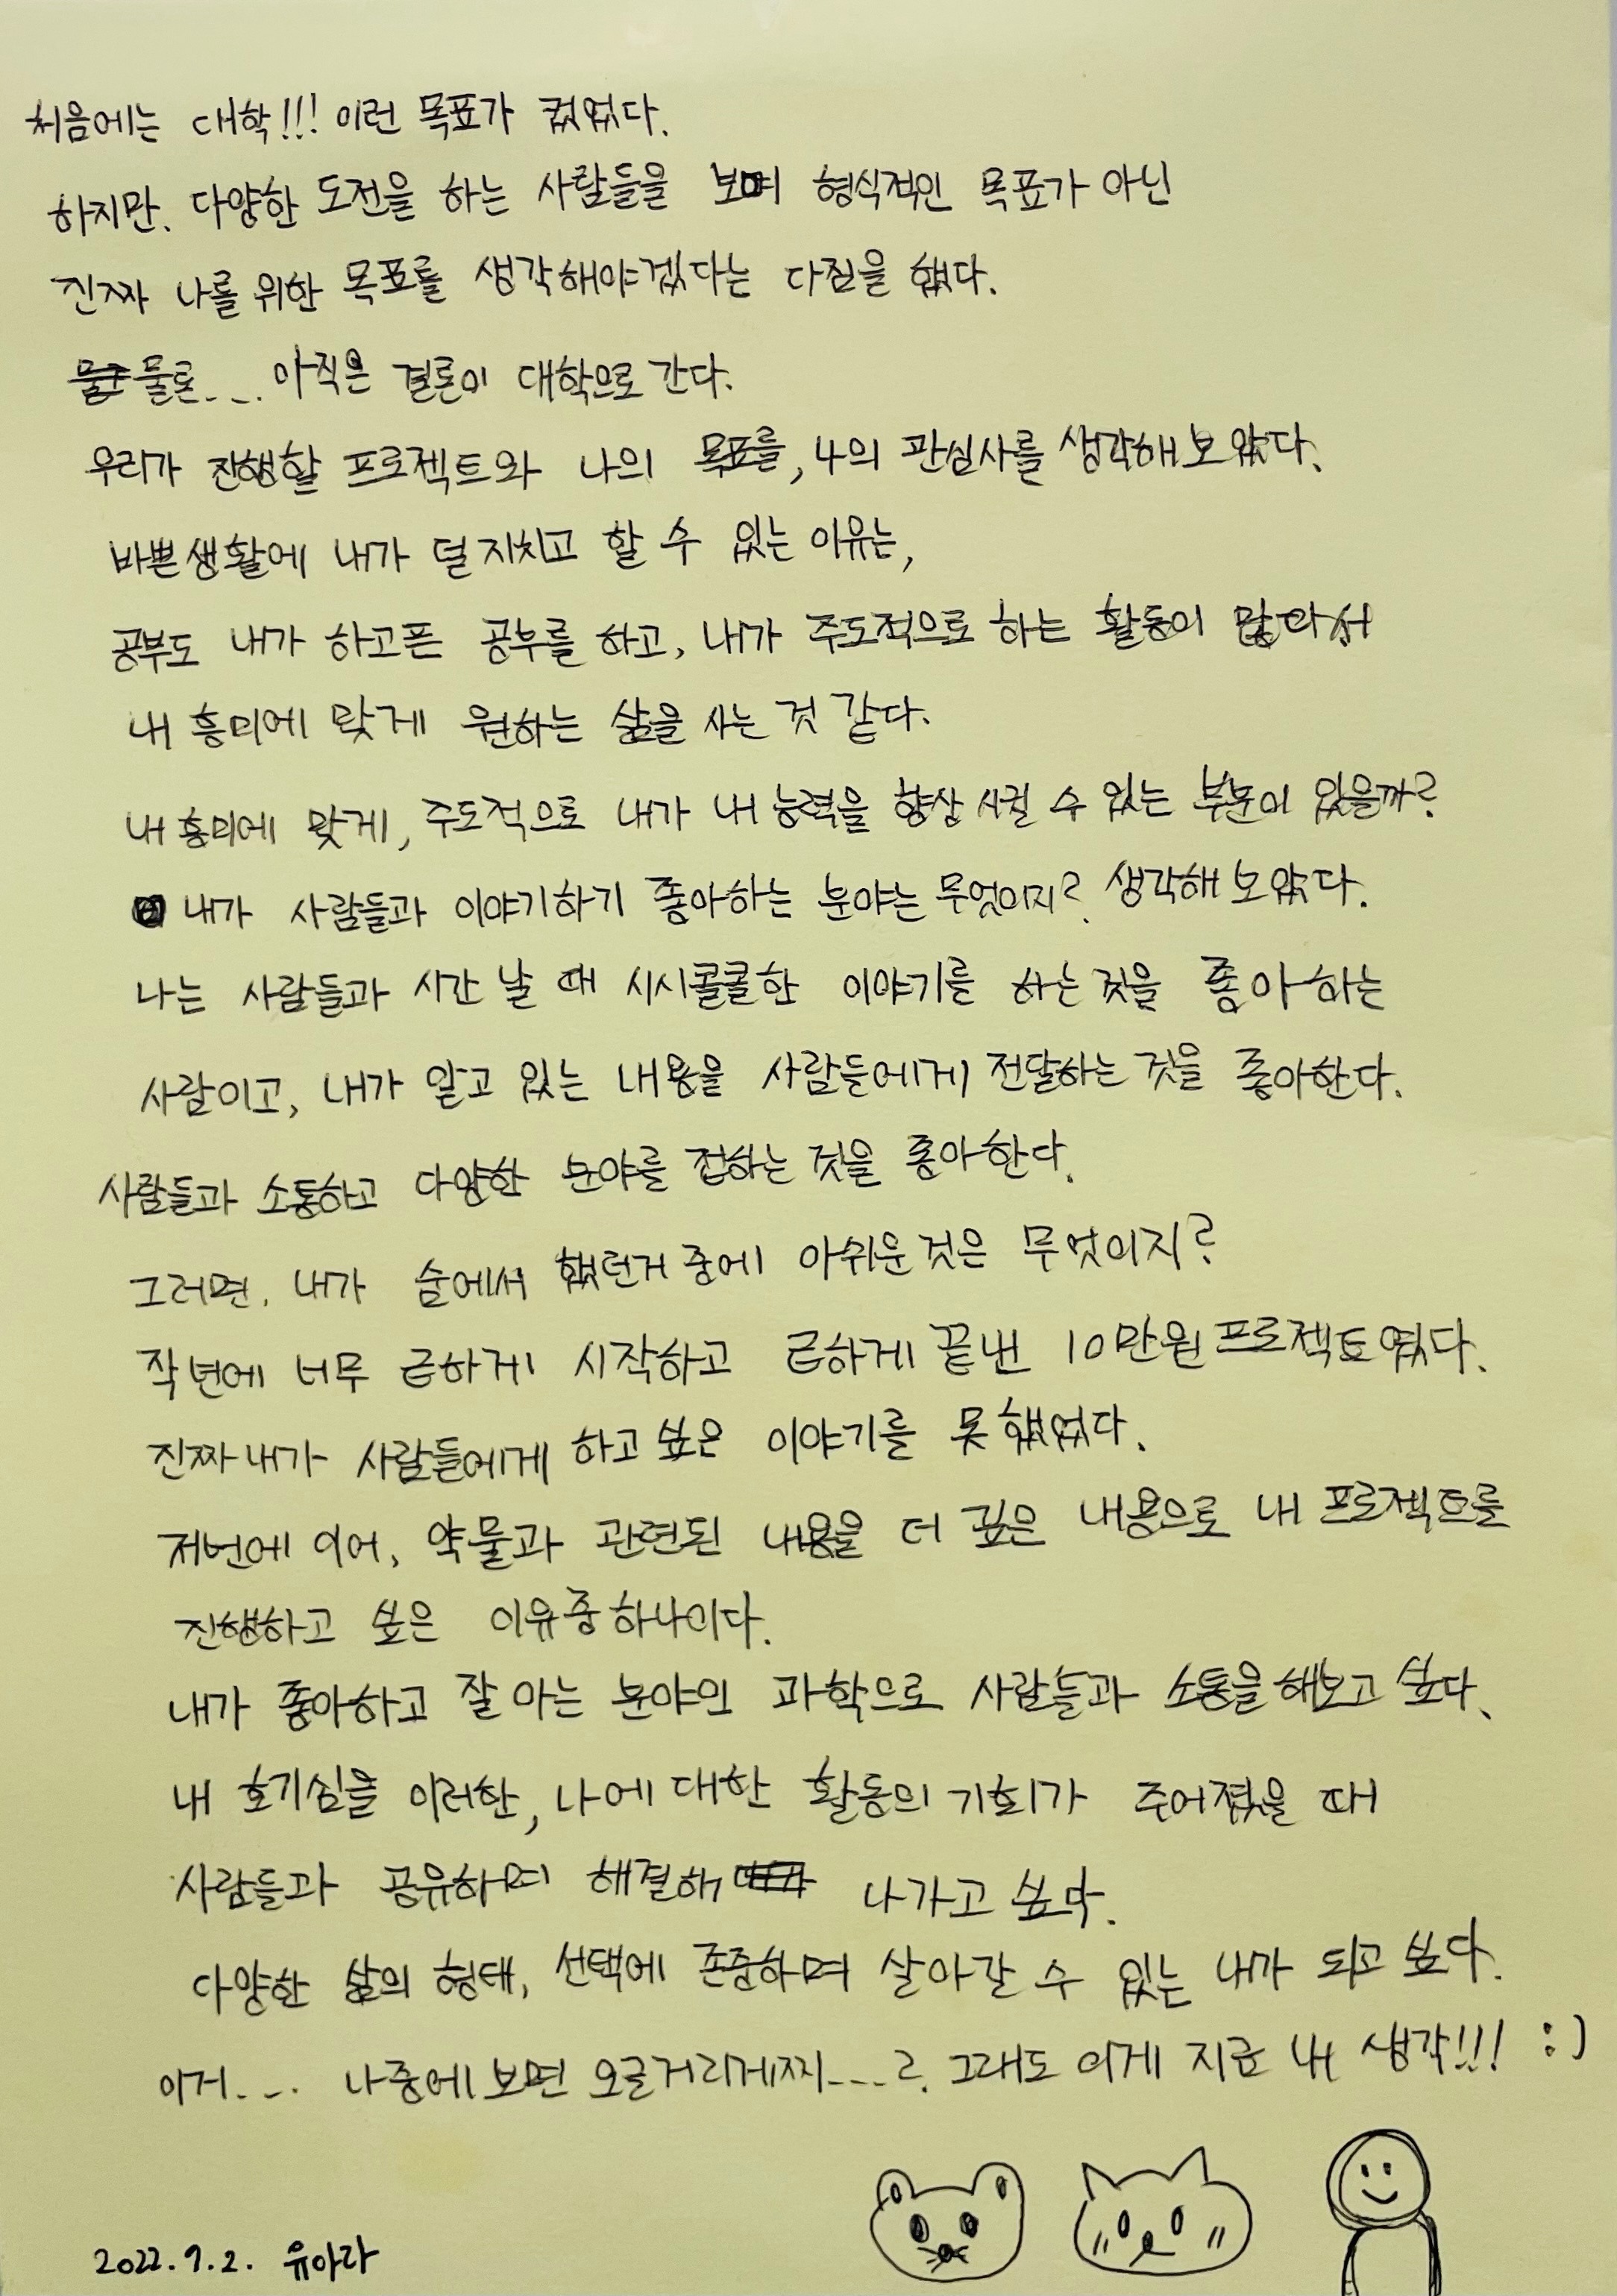 처음에는 대학!!! 이런 목표가 컸었다.
하지만, 다양한 도전을 하는 사람들을 보며 형식적인 목표가 아닌
진짜 나를 위한 목표를 생각해야겠다는 다짐을 했다.
물론... 아직은 결론이 대학으로 간다.
우리가 진행할 프로젝트와 나의 목표를, 나의 관심사를 생각해보았다.
바쁜생활에 내가 덜 지치고 할 수 있는 이유는,
공부도 내가 하고픈 공부를 하고, 내가 주도적으로 하는 활동이 많다서
내 흥미에 맞게 원하는 삶을 사는 것 같다.
내 흥미에 맞게, 주도적으로 내가 내 능력을 향상 시킬 수 있는 부분이 있을까?
내가 사람들과 이야기하기 좋아하는 분야는 무엇이지? 생각해보았다.
나는 사람들과 시간 날 때 시시콜콜한 이야기를 하는 것을 좋아하는
사람이고, 내가 알고 있는 내용을 사람들에게 전달하는 것을 좋아한다.
사람들과 소통하고 다양한 분야를 접하는 것을 좋아한다.
그러면, 내가 숲에서 했던거 중에 아쉬운 것은 무엇이지?
작년에 너무 급하게 시작하고 급하게 끝낸 10만원 프로젝트였다.
진짜 내가 사람들에게 하고 싶은 이야기를 못 했었다.
저번에 이어, 약물과 관련된 내용을 더 깊은 내용으로 내 프로젝트를
진행하고 싶은 이유중 하나이다.
내가 좋아하고 잘 아는 분야인 과학으로 사람들과 소통을 해보고 싶다.
내 호기심을 이러한, 나에 대한 활동의 기회가 주어졌을 때
사람들과 공유하며 해결해 나가고 싶다.
다양한 삶의 형태, 선택에 존중하며 살아갈 수 있는 내가 되고 싶다.
이거... 나중에 보면 오글거리겠찌...? 그래도 이게 지금 내 생각!!! :)
2022.9.2. 유아라